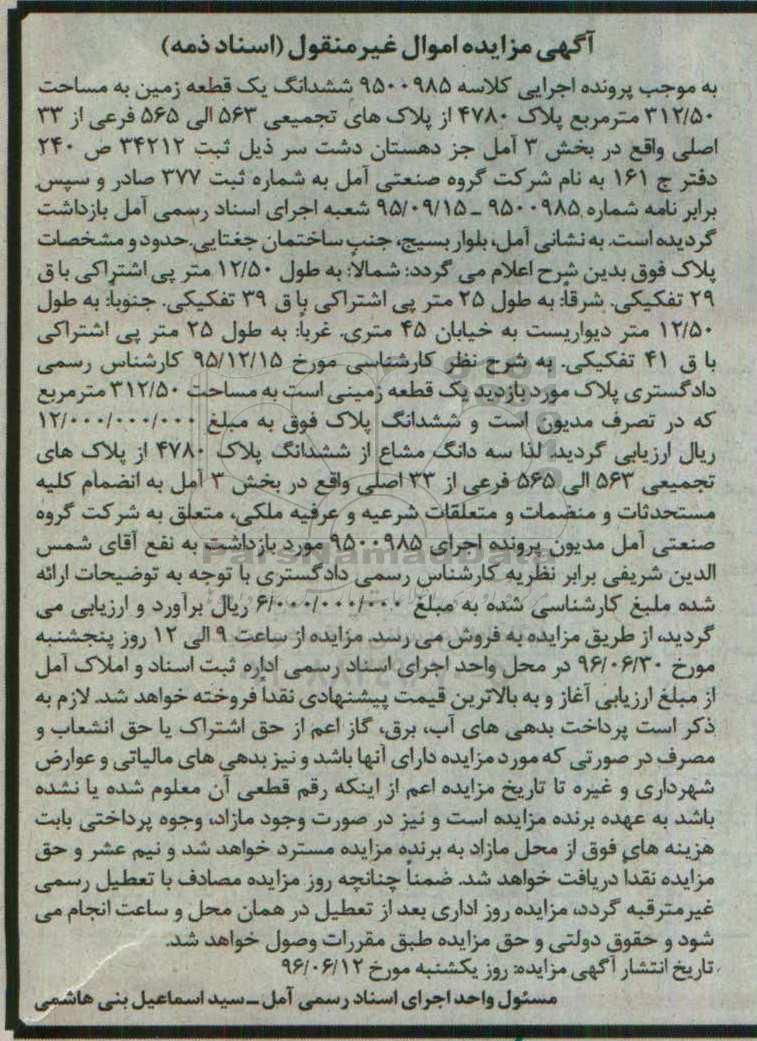 آگهی مزایده اموال غیرمنقول (اسناد ذمه)
به موجب پرونده اجرایی کلاسه ۹۵۰۰۹۸۵ ششدانگ یک قطعه زمین به مساحت
۳۱۲/۵۰ مترمربع پلاک ۴۷۸۰ از پلاک های تجمیعی ۵۶۳ الی ۵۶۵ فرعی از ۳۳
اصلی واقع در بخش ۳ آمل جز دهستان دشت سر ذیل ثبت ۳۴۲۱۲ ص ۲۴۰
دفتر ج ۱۶۱ به نام شرکت گروه صنعتی آمل به شماره ثبت ۳۷۷ صادر و سپس
برابر نامه شماره ۹۵۰۰۹۸۵ ـ ۹۵/۰۹/۱۵ شعبه اجرای اسناد رسمی آمل بازداشت
گردیده است. به نشانی آمل، بلوار بسیج، جنب ساختمان جغتایی. حدود و مشخصات
پلاک فوق بدین شرح اعلام می گردد: شمالاً: به طول ۱۲/۵۰ متر پی اشتراکی با ق
۲۹ تفکیکی. شرقاً: به طول ۲۵ متر پی اشتراکی با ق ۳۹ تفکیکی. جنوباً: به طول
۱۲/۵۰ متر دیواریست به خیابان ۴۵ متری. غرباً: به طول ۲۵ متر پی اشتراکی
با ق ۴۱ تفکیکی. به شرح نظر کارشناسی مورخ ۹۵/۱۲/۱۵ کارشناس رسمی
دادگستری پلاک مورد بازدید یک قطعه زمینی است به مساحت ۳۱۲/۵۰ مترمربع
که در تصرف مدیون است و ششدانگ پلاک فوق به مبلغ ۱۲/۰۰۰/۰۰۰/۰۰۰
ریال ارزیابی گردید. لذا سه دانگ مشاع از ششدانگ پلاک ۴۷۸۰ از پلاک های
تجمیعی ۵۶۳ الی ۵۶۵ فرعی از ۳۳ اصلی واقع در بخش ۳ آمل به انضمام کلیه
مستحدثات و منضمات و متعلقات شرعیه و عرفیه ملکی، متعلق به شرکت گروه
صنعتی آمل مدیون پرونده اجرای ۹۵۰۰۹۸۵ مورد بازداشت به نفع آقای شمس
الدین شریفی برابر نظریه کارشناس رسمی دادگستری با توجه به توضیحات ارائه
شده ملبغ کارشناسی شده به مبلغ ۶/۰۰۰/۰۰۰/۰۰۰ ریال برآورد و ارزیابی می
گردید، از طریق مزایده به فروش می رسد. مزایده از ساعت ۹ الی ۱۲ روز پنجشنبه
مورخ ۹۶/۰۶/۳۰ در محل واحد اجرای اسناد رسمی اداره ثبت اسناد و املاک آمل
از مبلغ ارزیابی آغاز و به بالاترین قیمت پیشنهادی نقداً فروخته خواهد شد. لازم به
ذکر است پرداخت بدهی های آب، برق، گاز اعم از حق اشتراک یا حق انشعاب و
مصرف در صورتی که مورد مزایده دارای آنها باشد و نیز بدهی های مالیاتی و عوارض
شهرداری و غیره تا تاریخ مزایده اعم از اینکه رقم قطعی آن معلوم شده یا نشده
باشد به عهده برنده مزایده است و نیز در صورت وجود مازاد، وجوه پرداختی بابت
هزینه های فوق از محل مازاد به برنده مزایده مسترد خواهد شد و نیم عشر و حق
مزایده نقداً دریافت خواهد شد. ضمناً چنانچه روز مزایده مصادف با تعطیل رسمی
غیرمترقبه گردد، مزایده روز اداری بعد از تعطیل در همان محل و ساعت انجام می
شود و حقوق دولتی و حق مزایده طبق مقررات وصول خواهد شد.
تاریخ انتشار آگهی مزایده: روز یکشنبه مورخ ۹۶/۰۶/۱۲
مسئول واحد اجرای اسناد رسمی آمل ـ سید اسماعیل بنی هاشمی